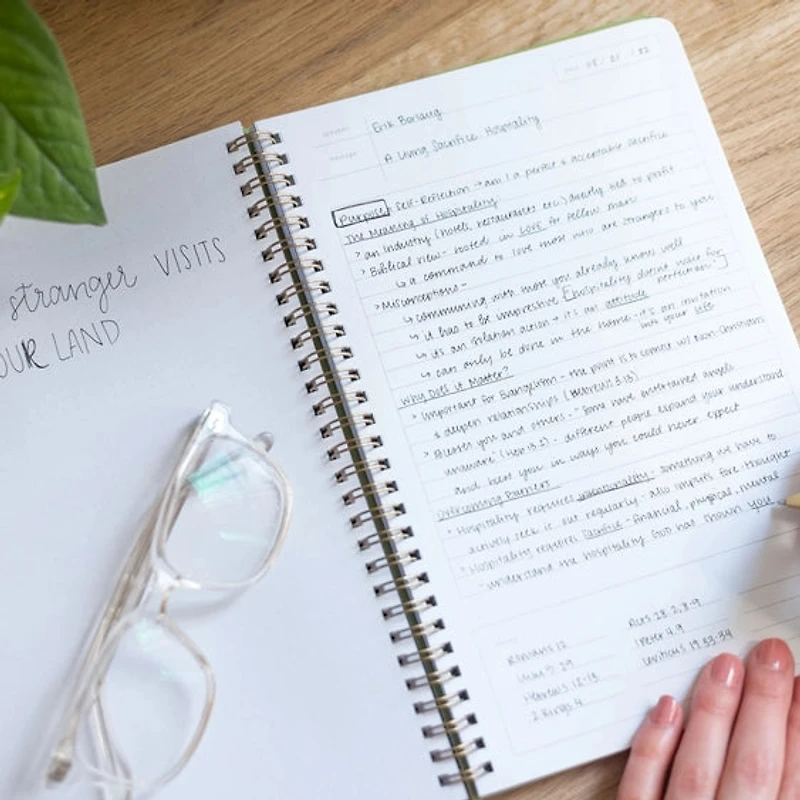 stranger VISITS
OUR LAND
Erik
A Living Sacrifice: Hospitality
Purpose: Self-Reflection → am I a perfect & acceptable sacrifice
The Meaning of Hospitality
> an Industry (hotels, restaurants etc.) directly tied to profit
> Biblical View- rooted in LOVE for fellow man.
↳ a command to love those who are strangers to you
> Misconceptions-
↳ communing with those you already know well
↳ it has to be impressive [hospitality doesn't wait for perfection"]
↳ it's an action → it's an attitude
↳ can only be done in the home - it's an invitation into your life
Why Does it Matter?
> Important for Evangelism - the point is to connect w/ non-Christians
& deepen relationships (Hebrews 3:13)
> Blesses you and others - "some have entertained angels
unaware" (Heb 13:2) - different people expand your understand
and bless you in ways you could never expect
Overcoming Barriers
> Hospitality requires intentionality - something we have to
actively seek it out regularly - also implies fore-thought
> Hospitality requires sacrifice - financial, physical, mental
understand the hospitality God has shown you
Romans 12
Hebrews 12-13
2 Kings 4
Acts 28:2, 8-9
1 Peter 4:9
Leviticus 19:33-34